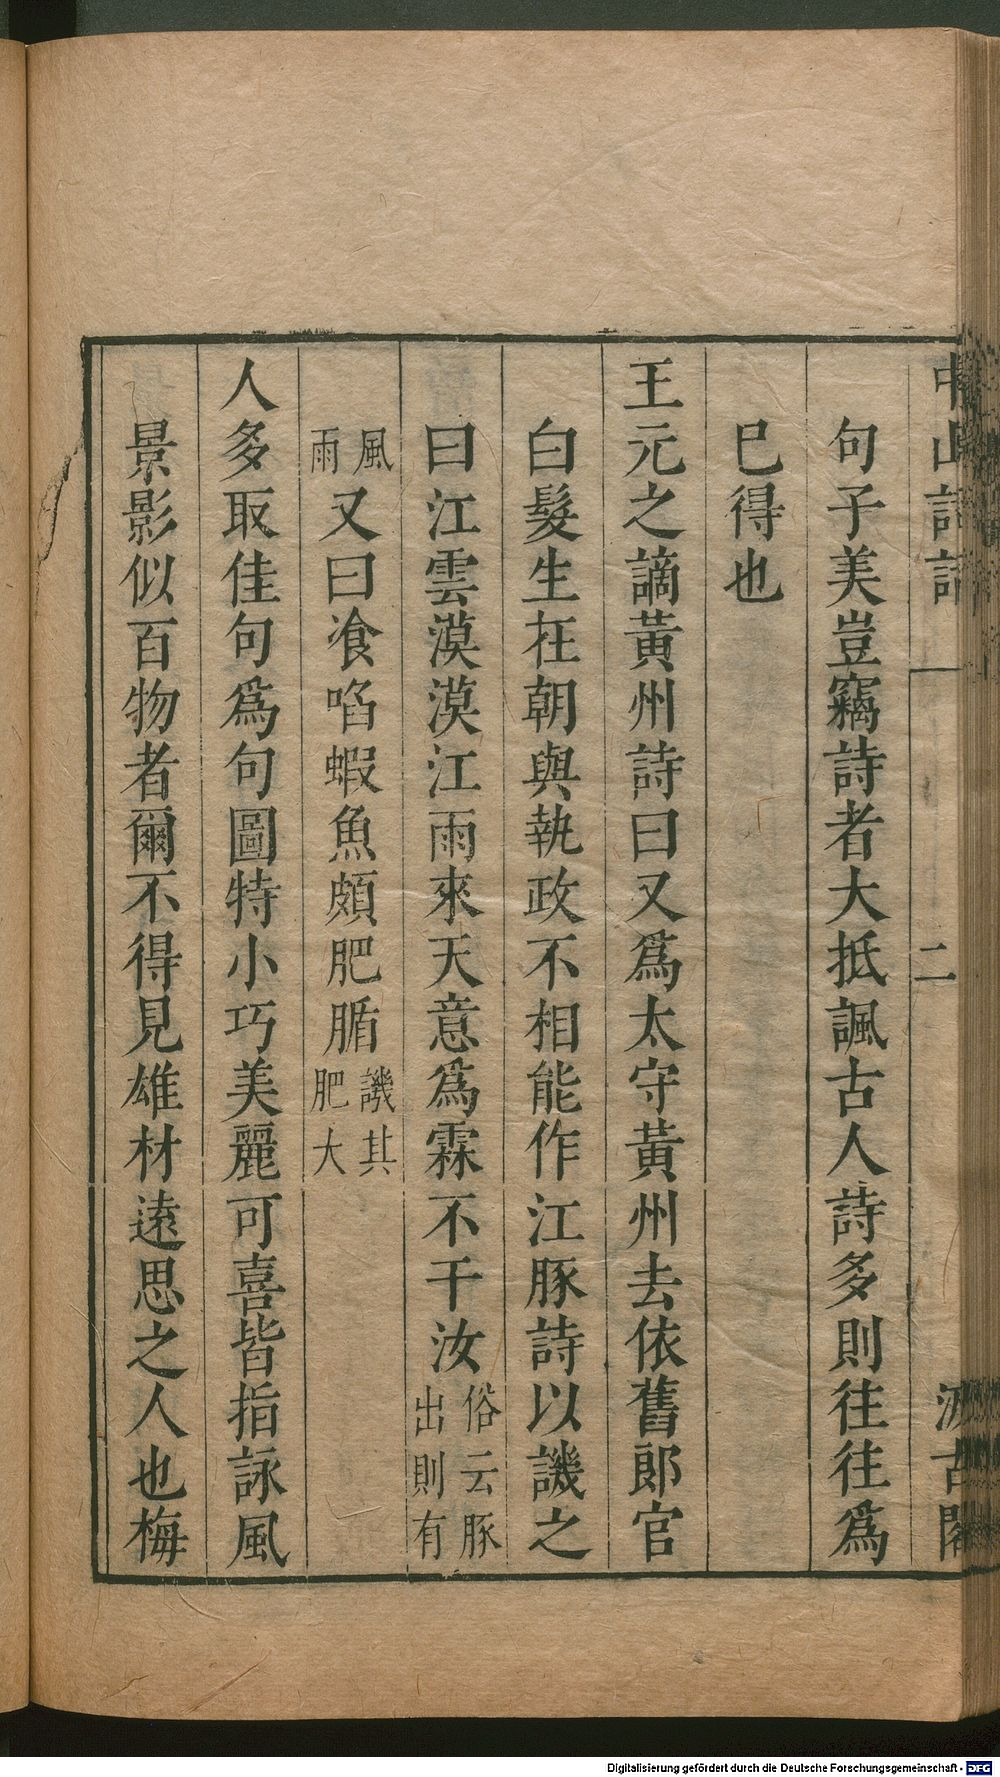 中山詩話 二 汲古閣
句子美豈竊詩者大抵諷古人詩多則往往爲
巳得也
王元之謫黃州詩曰又爲太守黃州去依舊郎官
白髮生在朝與執政不相能作江豚詩以譏之
曰江雲漠漠江雨來天意爲霖不干汝俗云豚出則有
風雨又曰飡啗蝦魚頗肥腯譏其肥大
人多取佳句爲句圖特小巧美麗可喜皆指詠風
景影似百物者爾不得見雄材遠思之人也梅
Digitalisierung gefördert durch die Deutsche Forschungsgemeinschaft - DFG